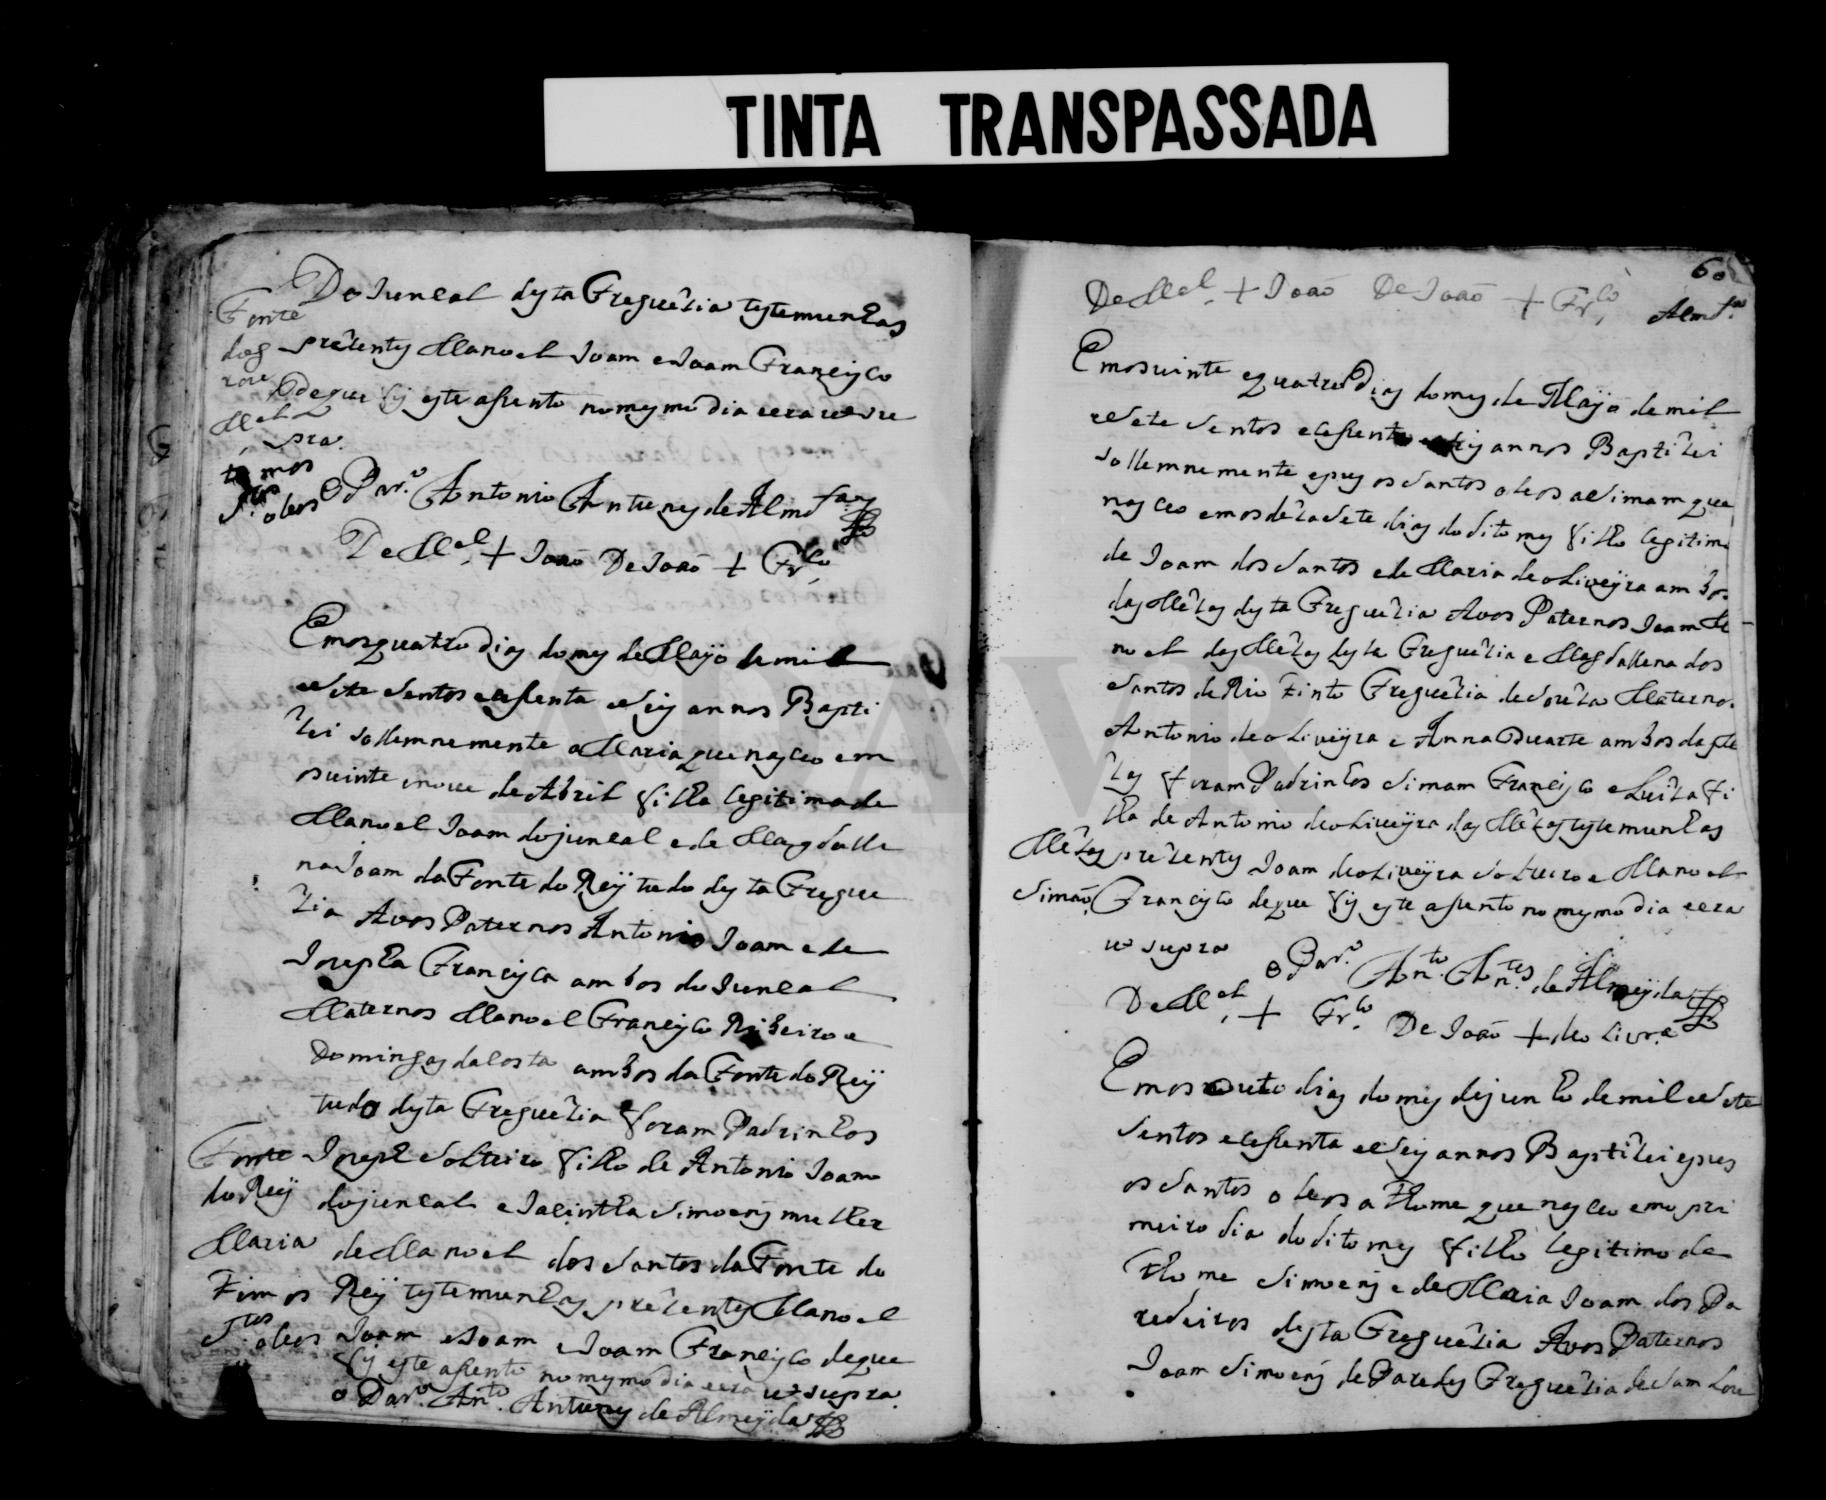 TINTA TRANSPASSADA
Do Juncal desta Freguezia testemunhas
Fonte
prezentes Manoel Joam e Joam Francisco
de que fis este asento no mesmo dia e era ut su
pra
Mel
timos
Stos oleos
O Par.º Antonio Antunes de Almdª
De Mel + João De João + Frco
Em os quatro dias do mes de Mayo de mil
e sete sentos e cesenta e seis annos Bapti
zei sollemnemente a Maria que nasceo em
os vinte e nove de Abril filha legitima de
Manoel Joam do juncal e de Magdalle
na Joam da Fonte do Reÿ tudo desta Fregue
zia Avos Paternos Antonio Joam e de
Josepha Francisca ambos do Juncal
Maternos Manoel Francisco Ribeiro e
Domingas da Costa ambos da Fonte do Reÿ
tudo desta Freguezia foram Padrinhos
Joseph solteiro filho de Antonio Joam
do juncal e Jacintha Simoens mulher
de Manoel dos Santos da Fonte do
Reÿ testemunhas prezentes Manoel
Joam e Joam Francisco de que
fis este asento no mesmo dia e era ut supra.
o Par.º Anto. Antunes de Almeÿda
Fonte
do Reÿ
Maria
Stos oleos
60
Almdª
De Mel. + João De João + Frco
Em os vinte e quatro Dias do mes de Mayo de mil
e sete sentos e cesenta e seis annos Baptizei
sollemnemente e pus os Santos oleos a Simam que
nasceo em os dezasete dias do dito mes filho legitimo
de Joam dos Santos e de Maria de oliveÿra ambos
das Mezas desta Freguezia Avos Paternos Joam Ma
noel das Mezas desta Freguezia e Magdallena dos
Santos de Rio Tinto Freguezia de Soûza Maternos
Antonio de oliveÿra e Anna Duarte ambos das Me
zas foram Padrinhos Simam Francisco e Luiza fi
lha de Antonio de oliveÿra das Mezas testemunhas
prezentes Joam de oliveÿra solteiro e Manoel
Francisco de que fis este asento no mesmo dia e era
ut supra
Mezas
Simão
o Par.º Anto. Antes. de Almeÿda
De Mel. + Frco. De João + de olivra
Em os outo dias do mes de junho de mil e sete
sentos e cesenta e seis annos Baptizei e pus
os Santos oleos a Thome que nasceo em o pri
meiro dia do dito mes filho legitimo de
Thome Simoens e de Maria Joam dos Pa
redeiros desta Freguezia Avos Paternos
Joam Simoens de Paredes Freguezia de Sam Lou